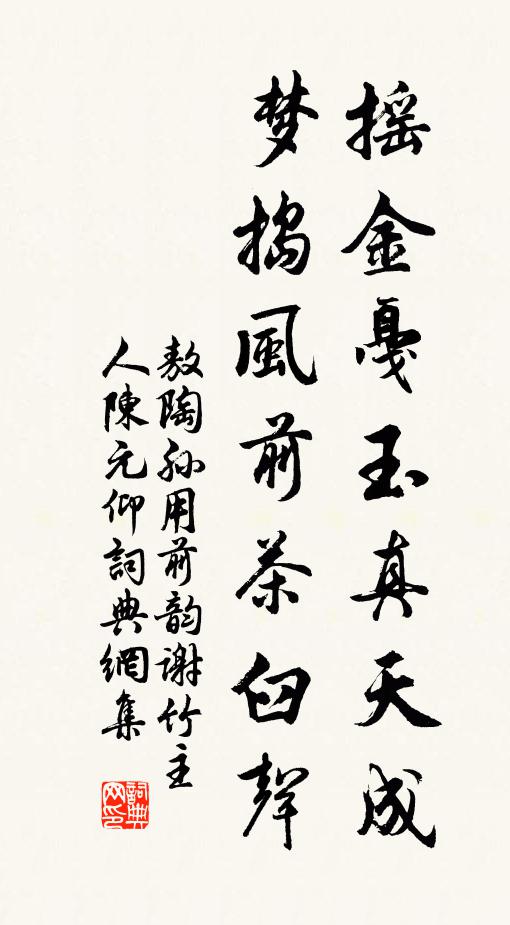 摇金戛玉真天成
梦捣風前茶臼聲
敖陶孙用前韵谢竹主
人陳元仰詞典網集
詞典
网印